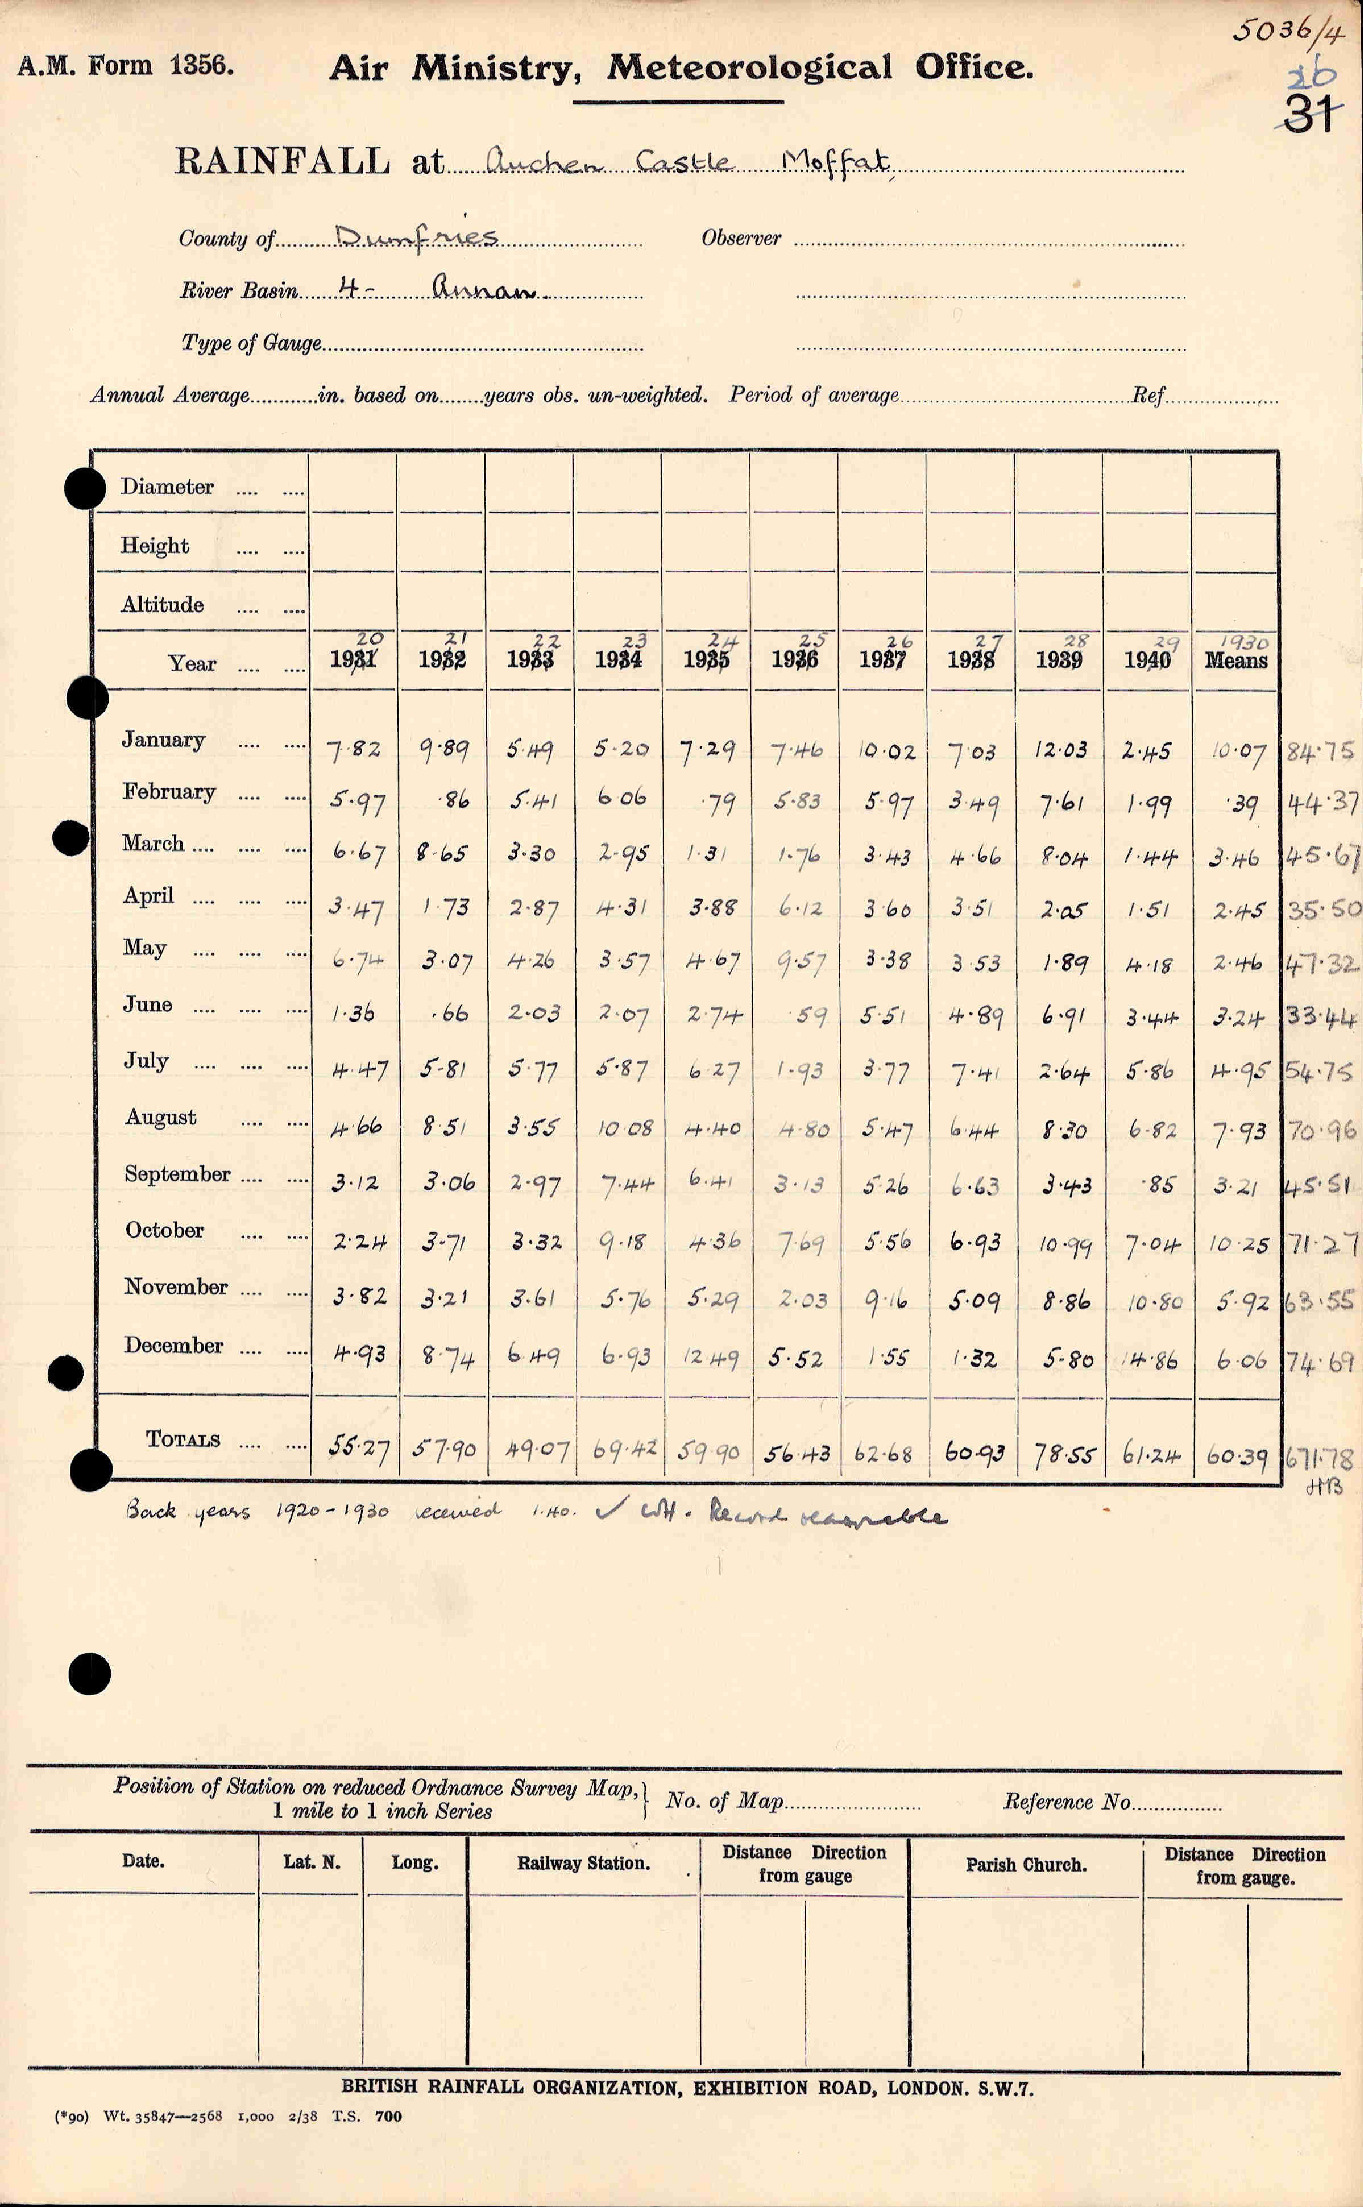 5036/4
A.M. Form 1356. Air Ministry, Meteorological Office.
26
31
RAINFALL at Auchen Castle Moffat
County of Dumfries Observer
River Basin 4- Annan
Type of Gauge
Annual Average in. based on years obs. un-weighted. Period of average Ref
Diameter .... ....
Height .... ....
Altitude .... ....
20 21 22 23 24 25 26 27 28 29 1930
Year .... .... 1931 1932 1933 1934 1935 1936 1937 1938 1939 1940 Means
January .... .... 7.82 9.89 5.49 5.20 7.29 7.46 10.02 7.03 12.03 2.45 10.07 84.75
February .... .... 5.97 .86 5.41 6.06 .79 5.83 5.97 3.49 7.61 1.99 .39 44.37
March .... .... .... 6.67 8.65 3.30 2.95 1.31 1.76 3.43 4.66 8.04 1.44 3.46 45.67
April .... .... .... 3.47 1.73 2.87 4.31 3.88 6.12 3.60 3.51 2.05 1.51 2.45 35.50
May .... .... .... 6.74 3.07 4.26 3.57 4.67 9.57 3.38 3.53 1.89 4.18 2.46 47.32
June .... .... .... 1.36 .66 2.03 2.07 2.74 .59 5.51 4.89 6.91 3.44 3.24 33.44
July .... .... .... 4.47 5.81 5.77 5.87 6.27 1.93 3.77 7.41 2.64 5.86 4.95 54.75
August .... .... 4.66 8.51 3.55 10.08 4.40 4.80 5.47 6.44 8.30 6.82 7.93 70.96
September .... .... 3.12 3.06 2.97 7.44 6.41 3.13 5.26 6.63 3.43 .85 3.21 45.51
October .... .... 2.24 3.71 3.32 9.18 4.36 7.69 5.56 6.93 10.99 7.04 10.25 71.27
November .... .... 3.82 3.21 3.61 5.76 5.29 2.03 9.16 5.09 8.86 10.80 5.92 63.55
December .... .... 4.93 8.74 6.49 6.93 12.49 5.52 1.55 1.32 5.80 14.86 6.06 74.69
TOTALS .... .... 55.27 57.90 49.07 69.42 59.90 56.43 62.68 60.93 78.55 61.24 60.39 671.78
HB
Back years 1920-1930 received 1.40. ✓ Record reasonable
Position of Station on reduced Ordnance Survey Map, 1 mile to 1 inch Series } No. of Map Reference No.
Date. Lat. N. Long. Railway Station. Distance Direction from gauge Parish Church. Distance Direction from gauge.
BRITISH RAINFALL ORGANIZATION, EXHIBITION ROAD, LONDON. S.W.7.
(*90) Wt. 35847—2568 1,000 2/38 T.S. 700